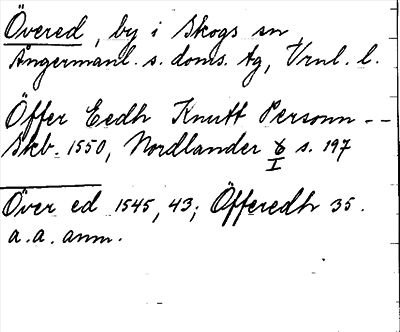 Övered, by i Skogs sn,
Ångermanl. s. doms. tg, Vrnl. l.
Öffer Eedh Knutt Personn --
Skb. 1550, Nordlander 6 s. 197
I
Över ed 1545, 43; Öfferedh 35.
a. a. anm.